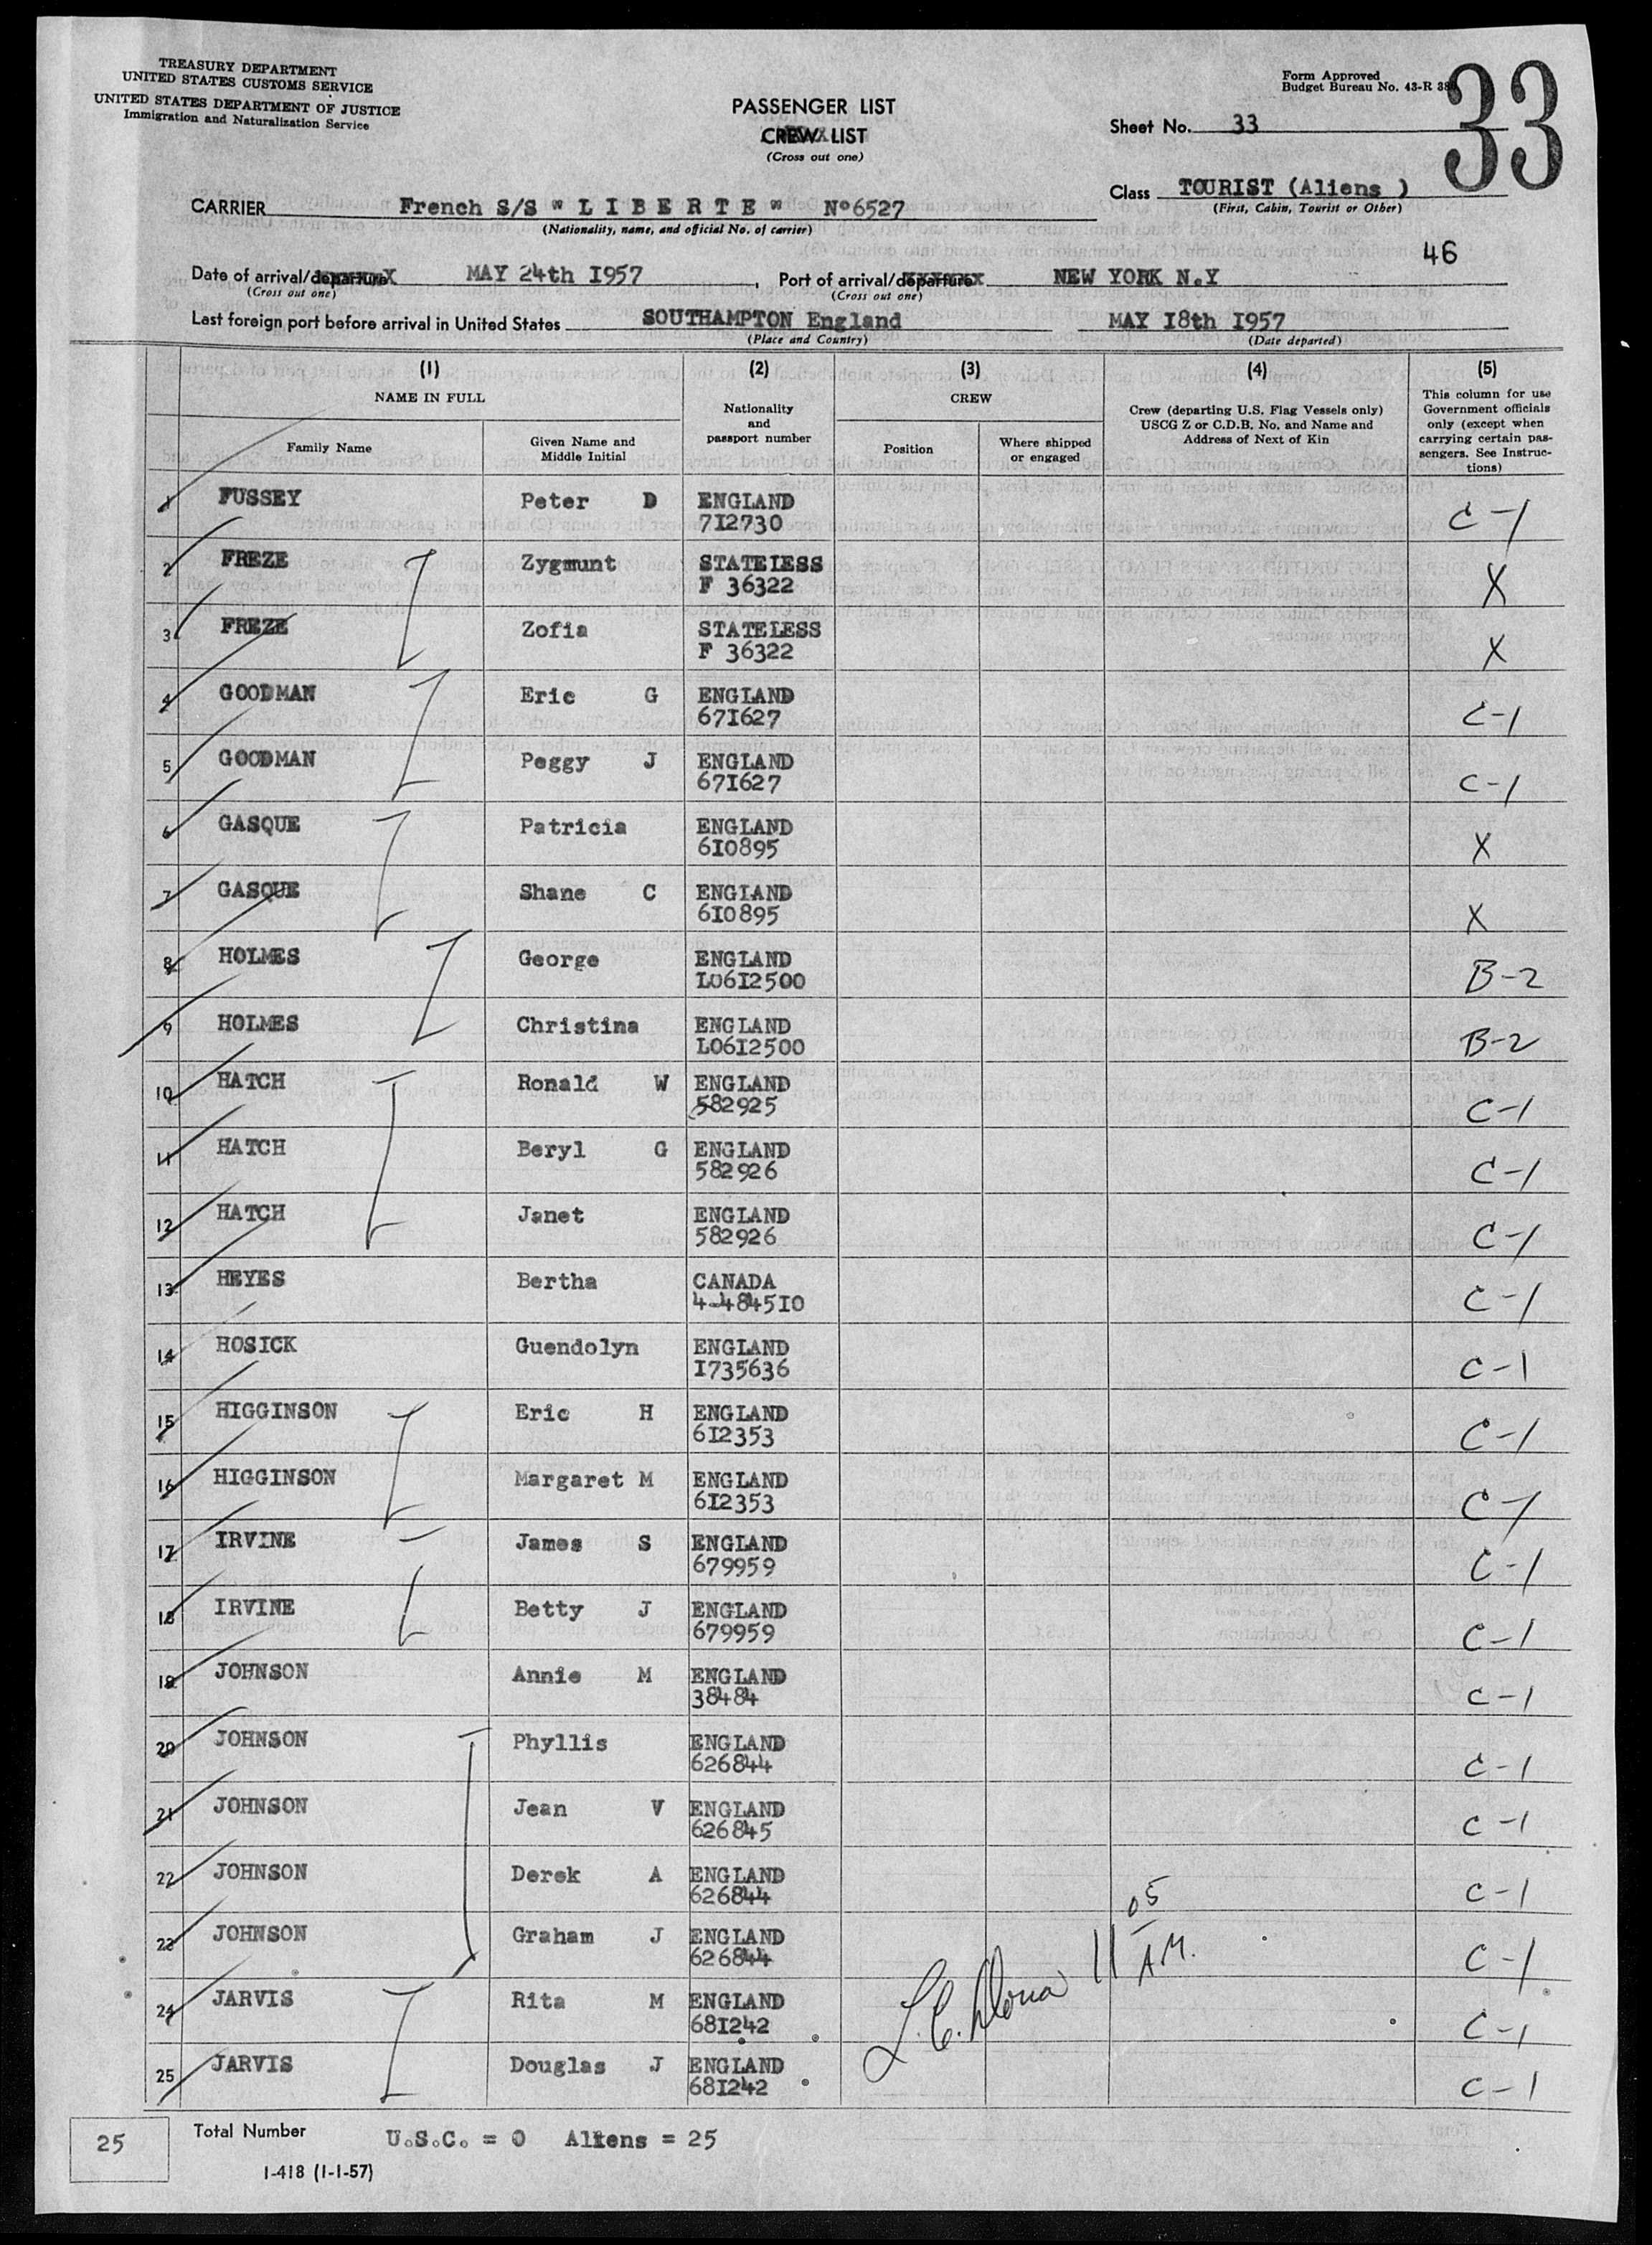 TREASURY DEPARTMENT
UNITED STATES CUSTOMS SERVICE
UNITED STATES DEPARTMENT OF JUSTICE
Immigration and Naturalization Service
Form Approved
Budget Bureau No. 43-R 38
33
PASSENGER LIST
CREW LIST
(Cross out one)
Sheet No. 33
Class TOURIST (Aliens )
(First, Cabin, Tourist or Other)
CARRIER French S/S " L I B E R T E " N°6527
(Nationality, name, and official No. of carrier)
46
Date of arrival/departure MAY 24th I957, Port of arrival/departure NEW YORK N.Y
(Cross out one) (Cross out one)
Last foreign port before arrival in United States SOUTHAMPTON England MAY I8th I957
(Place and Country) (Date departed)
(1) (2) (3) (4) (5)
NAME IN FULL
Family Name
Given Name and
Middle Initial
Nationality
and
passport number
CREW
Position
Where shipped
or engaged
Crew (departing U.S. Flag Vessels only)
USCG Z or C.D.B. No. and Name and
Address of Next of Kin
This column for use
Government officials
only (except when
carrying certain pas-
sengers. See Instruc-
tions)
1 FUSSEY Peter D ENGLAND
7I2730 C-1
2 FREZE Zygmunt STATELESS
F 36322 X
3 FREZE Zofia STATELESS
F 36322 X
4 GOODMAN Eric G ENGLAND
67I627 C-1
5 GOODMAN Peggy J ENGLAND
67I627 C-1
6 GASQUE Patricia ENGLAND
6I0895 X
7 GASQUE Shane C ENGLAND
6I0895 X
8 HOLMES George ENGLAND
L06I2500 B-2
9 HOLMES Christina ENGLAND
L06I2500 B-2
10 HATCH Ronald W ENGLAND
582925 C-1
11 HATCH Beryl G ENGLAND
582926 C-1
12 HATCH Janet ENGLAND
582926 C-1
13 HEYES Bertha CANADA
4-4845I0 C-1
14 HOSICK Guendolyn ENGLAND
I735636 C-1
15 HIGGINSON Eric H ENGLAND
6I2353 C-1
16 HIGGINSON Margaret M ENGLAND
6I2353 C-1
17 IRVINE James S ENGLAND
679959 C-1
18 IRVINE Betty J ENGLAND
679959 C-1
19 JOHNSON Annie M ENGLAND
38484 C-1
20 JOHNSON Phyllis ENGLAND
626844 C-1
21 JOHNSON Jean V ENGLAND
626845 C-1
22 JOHNSON Derek A ENGLAND
626844 C-1
23 JOHNSON Graham J ENGLAND
626844 C-1
11 05 AM.
24 JARVIS Rita M ENGLAND
68I242 C-1
25 JARVIS Douglas J ENGLAND
68I242 C-1
25
Total Number U.S.C. = 0 Aliens = 25
I-418 (1-1-57)